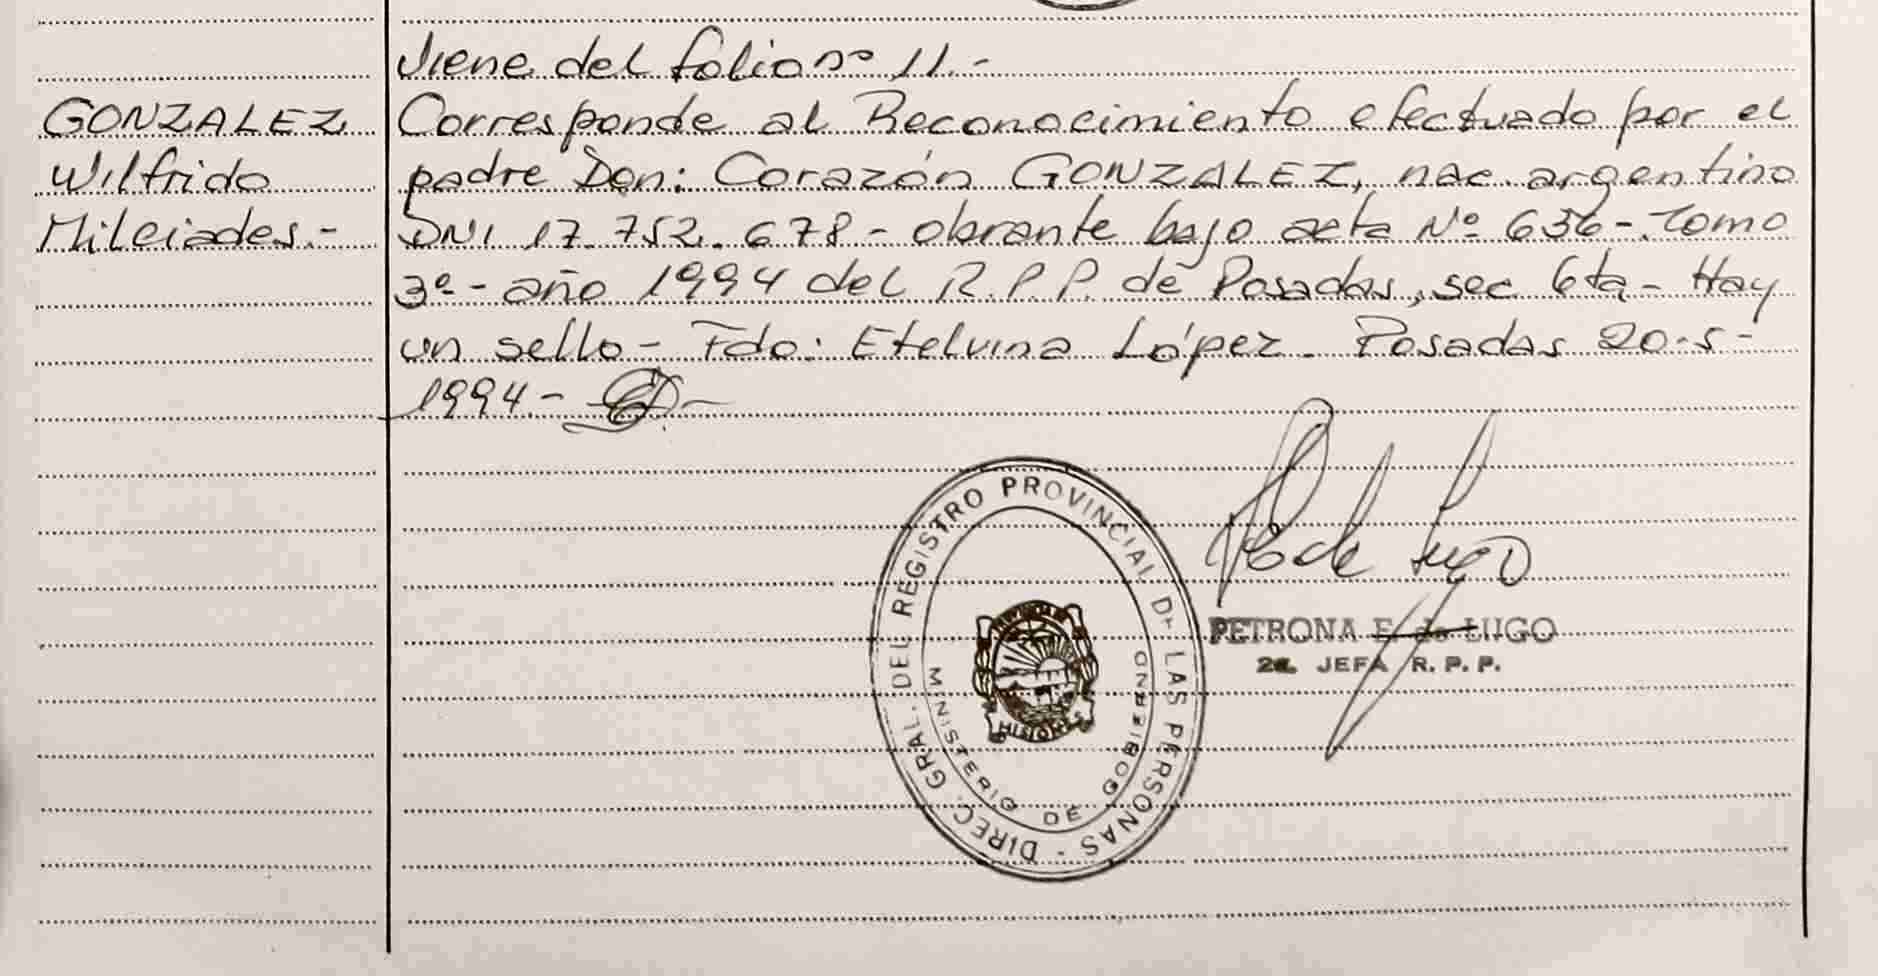 Viene del folio nº 11.-
GONZALEZ
Wilfrido
Milciades.-
Corresponde al Reconocimiento efectuado por el
padre Don: Corazón GONZALEZ, nac. argentino
DNI 17.752.678 - obrante bajo acta Nº 636 - Tomo
3º - año 1994 del R.P.P. de Posadas, sec 6ta - Hay
un sello - Fdo: Etelvina López. Posadas 20-5-
1994.-
DIREC. GRAL. DEL REGISTRO PROVINCIAL DE LAS PERSONAS -
MINISTERIO DE GOBIERNO
PROVINCIA DE
MISIONES
PETRONA E. de LUGO
2a. JEFA R. P. P.